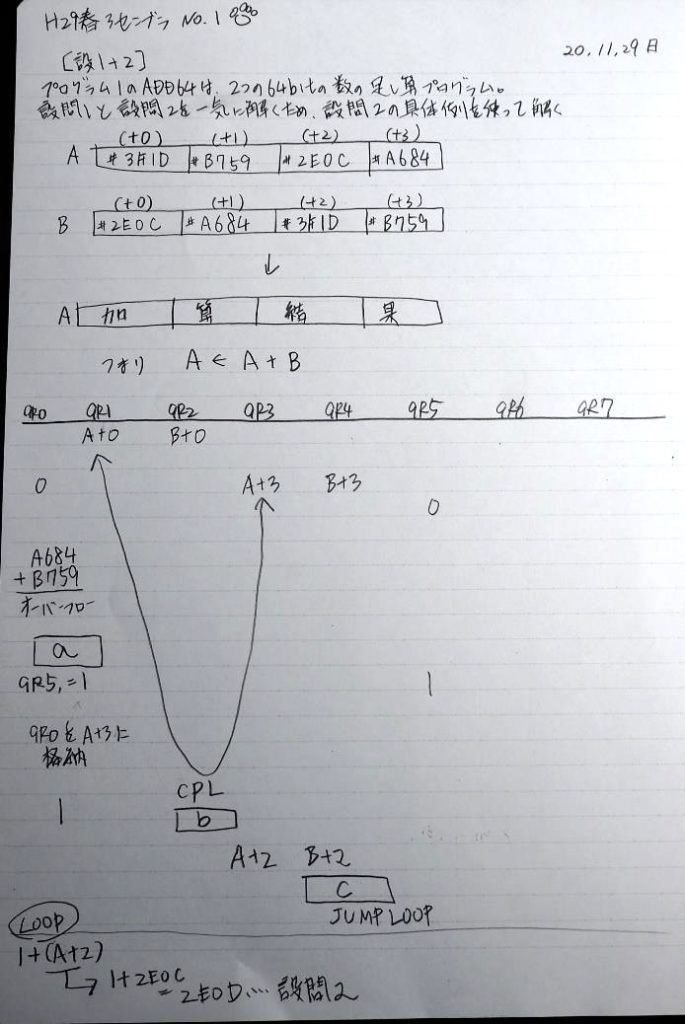 H29春 アセンブラ No.1
20.11.29日
[設1+2]
プログラム1のADD64は、2つの64bitの数の足し算プログラム。
設問1と設問2を一気に解くため、設問2の具体例を使って解く
(+0) (+1) (+2) (+3)
A #3F1D #B759 #2E0C #A684
(+0) (+1) (+2) (+3)
B #2E0C #A684 #3F1D #B759
↓
A 加 算 結 果
つまり A ← A + B
GR0 GR1 GR2 GR3 GR4 GR5 GR6 GR7
A+0 B+0
0 A+3 B+3 0
A684
+B759
オーバーフロー
a
GR5,=1 1
GR0をA+3に
格納
CPL
1 b
A+2 B+2
C
JUMP LOOP
LOOP
1+(A+2)
1+2E0C
=2E0D.... 設問2